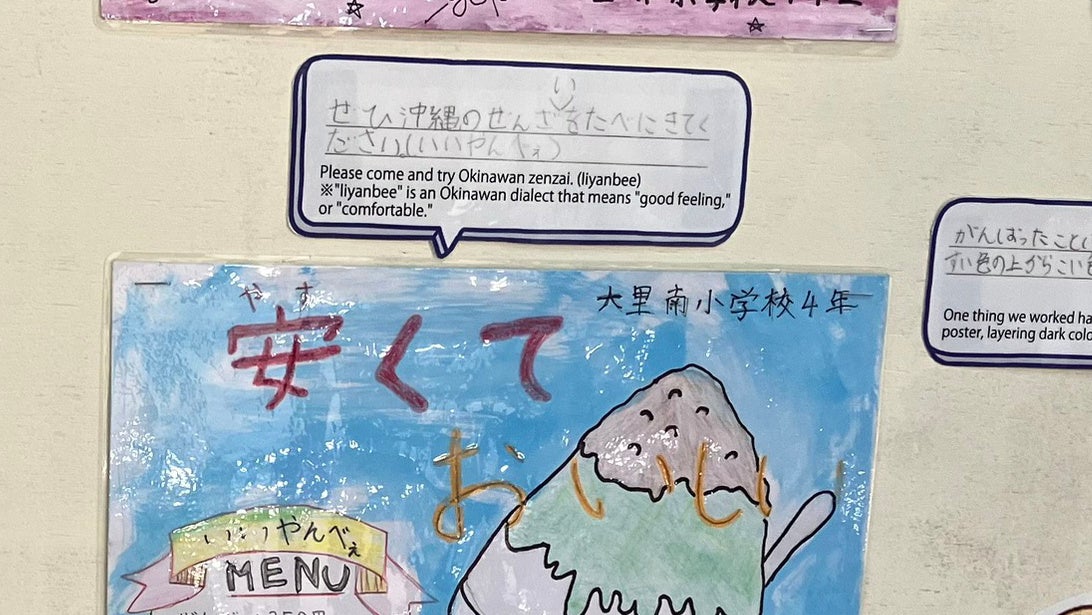 い
ぜひ沖縄のぜんざをたべにきてく
ださい。(いいやんべぇ)
Please come and try Okinawan zenzai. (liyanbee)
※"liyanbee" is an Okinawan dialect that means "good feeling,"
or "comfortable."
がんばったこと
すい色の上からこい
One thing we worked ha
poster, layering dark colo
大里南小学校4年
やす
安くて
おいしい
いいやんべぇ
MENU